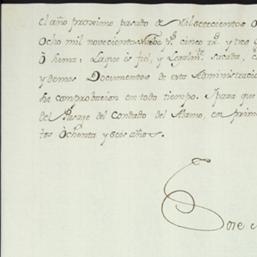 el año proximo pasado de Mil setecientos O
Ocho mil novecientos y cinco r.s y tres
ô suma: La que es fiel, y Legalm.te sacada, c
y demas Documentos de esta Administracio
ha comprobacion en todo tiempo. Y para que
del Pasaje del Condado del Alamo, en prim
tos Ochenta y seis años.
Jose